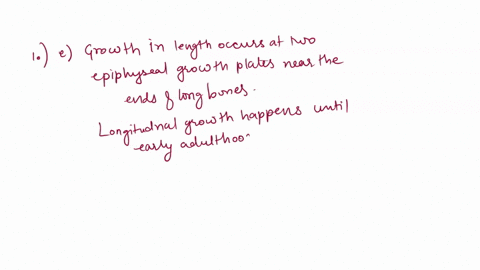 10.) e) Growth in length occurs at two
epiphyseal growth plates near the
ends of long bones.
Longitudnal growth happens until
early adulthoo